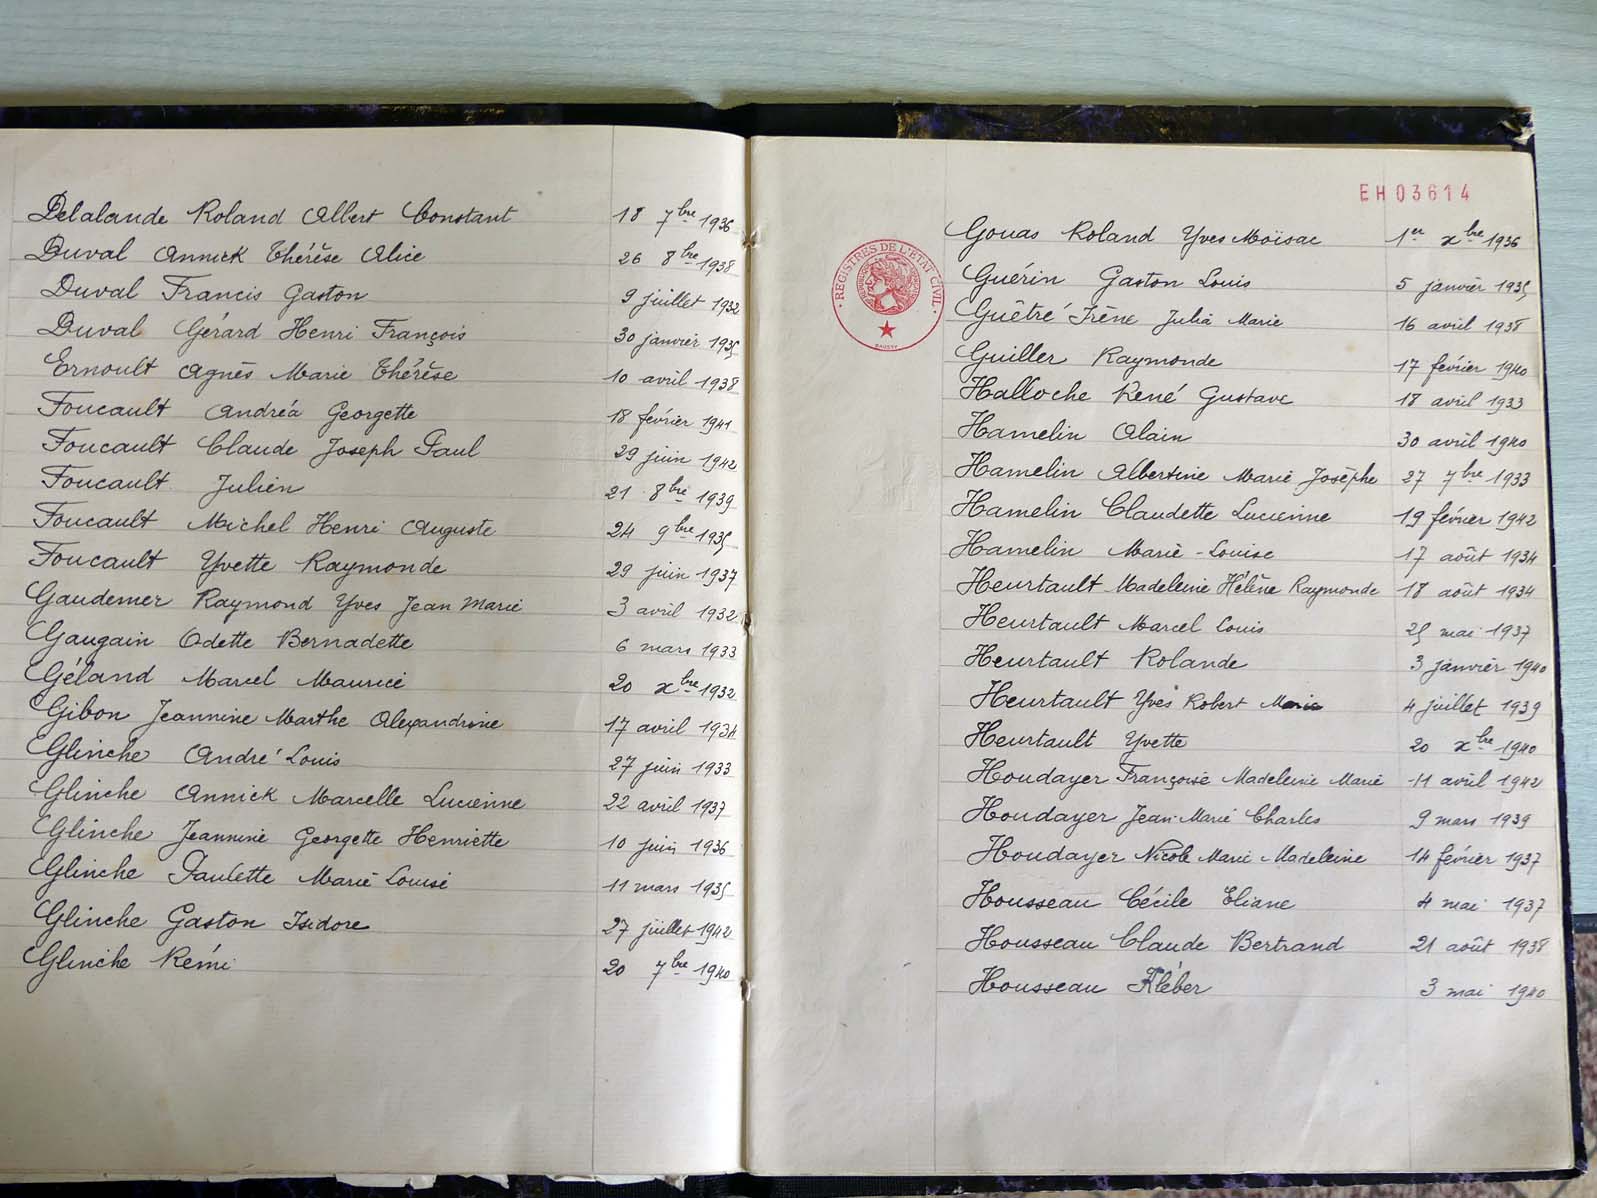 Delalande Roland Albert Constant 18 7bre 1936
Duval Annick Thérèse Alice 26 8bre 1938
Duval Francis Gaston 9 juillet 1932
Duval Gérard Henri François 30 janvier 1935
Ernoult Agnès Marie Thérèse 10 avril 1938
Foucault Andréa Georgette 18 février 1941
Foucault Claude Joseph Paul 29 juin 1942
Foucault Julien 21 8bre 1939
Foucault Michel Henri Auguste 24 9bre 1935
Foucault Yvette Raymonde 29 juin 1937
Gaudemer Raymond Yves Jean Marie 3 avril 1932
Gaugain Odette Bernadette 6 mars 1933
Géland Marcel Maurice 20 xbre 1932
Gibon Jeannine Marthe Alexandrine 17 avril 1934
Glinche André Louis 27 juin 1933
Glinche Annick Marcelle Lucienne 22 avril 1937
Glinche Jeannine Georgette Henriette 10 juin 1936
Glinche Paulette Marie Louise 11 mars 1935
Glinche Gaston Isidore 27 juillet 1942
Glinche Rémi 20 7bre 1940
EH03614
REGISTRES DE L'ETAT CIVIL
Gouas Roland Yves Moïsac 1er xbre 1936
Guérin Gaston Louis 5 janvier 1935
Guêtré Irène Julia Marie 16 avril 1938
Guiller Raymonde 17 février 1940
Halloche René Gustave 18 avril 1933
Hamelin Alain 30 avril 1940
Hamelin Albertine Marie Josèphe 27 7bre 1933
Hamelin Claudette Lucienne 19 février 1942
Hamelin Marie-Louise 17 août 1934
Heurtault Madeleine Hélène Raymonde 18 août 1934
Heurtault Marcel Louis 25 mai 1937
Heurtault Rolande 3 janvier 1940
Heurtault Yves Robert Marie 4 juillet 1939
Heurtault Yvette 20 xbre 1940
Houdayer Françoise Madeleine Marie 11 avril 1942
Houdayer Jean-Marie Charles 9 mars 1939
Houdayer Nicole Marie Madeleine 14 février 1937
Housseau Cécile Eliane 4 mai 1937
Housseau Claude Bertrand 21 août 1938
Housseau Kléber 3 mai 1940